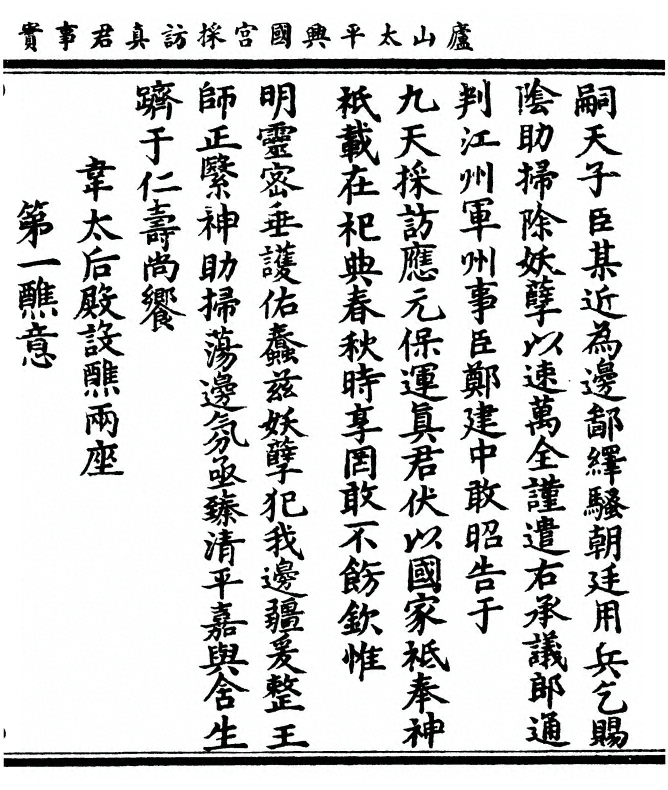 廬山太平興國宮採訪真君事實
嗣天子臣某近為邊鄙繹騷朝廷用兵乞賜
陰助掃除妖孽以速萬全謹遣右承議郎通
判江州軍州事臣鄭建中敢昭告于
九天採訪應元保運真君伏以國家祗奉神
祇載在祀典春秋時享罔敢不飭欽惟
明靈密垂護佑蠢茲妖孽犯我邊疆爰整王
師正緊神助掃蕩邊氛亟臻清平嘉與含生
躋于仁壽尚饗
韋太后殿設醮兩座
第一醮意